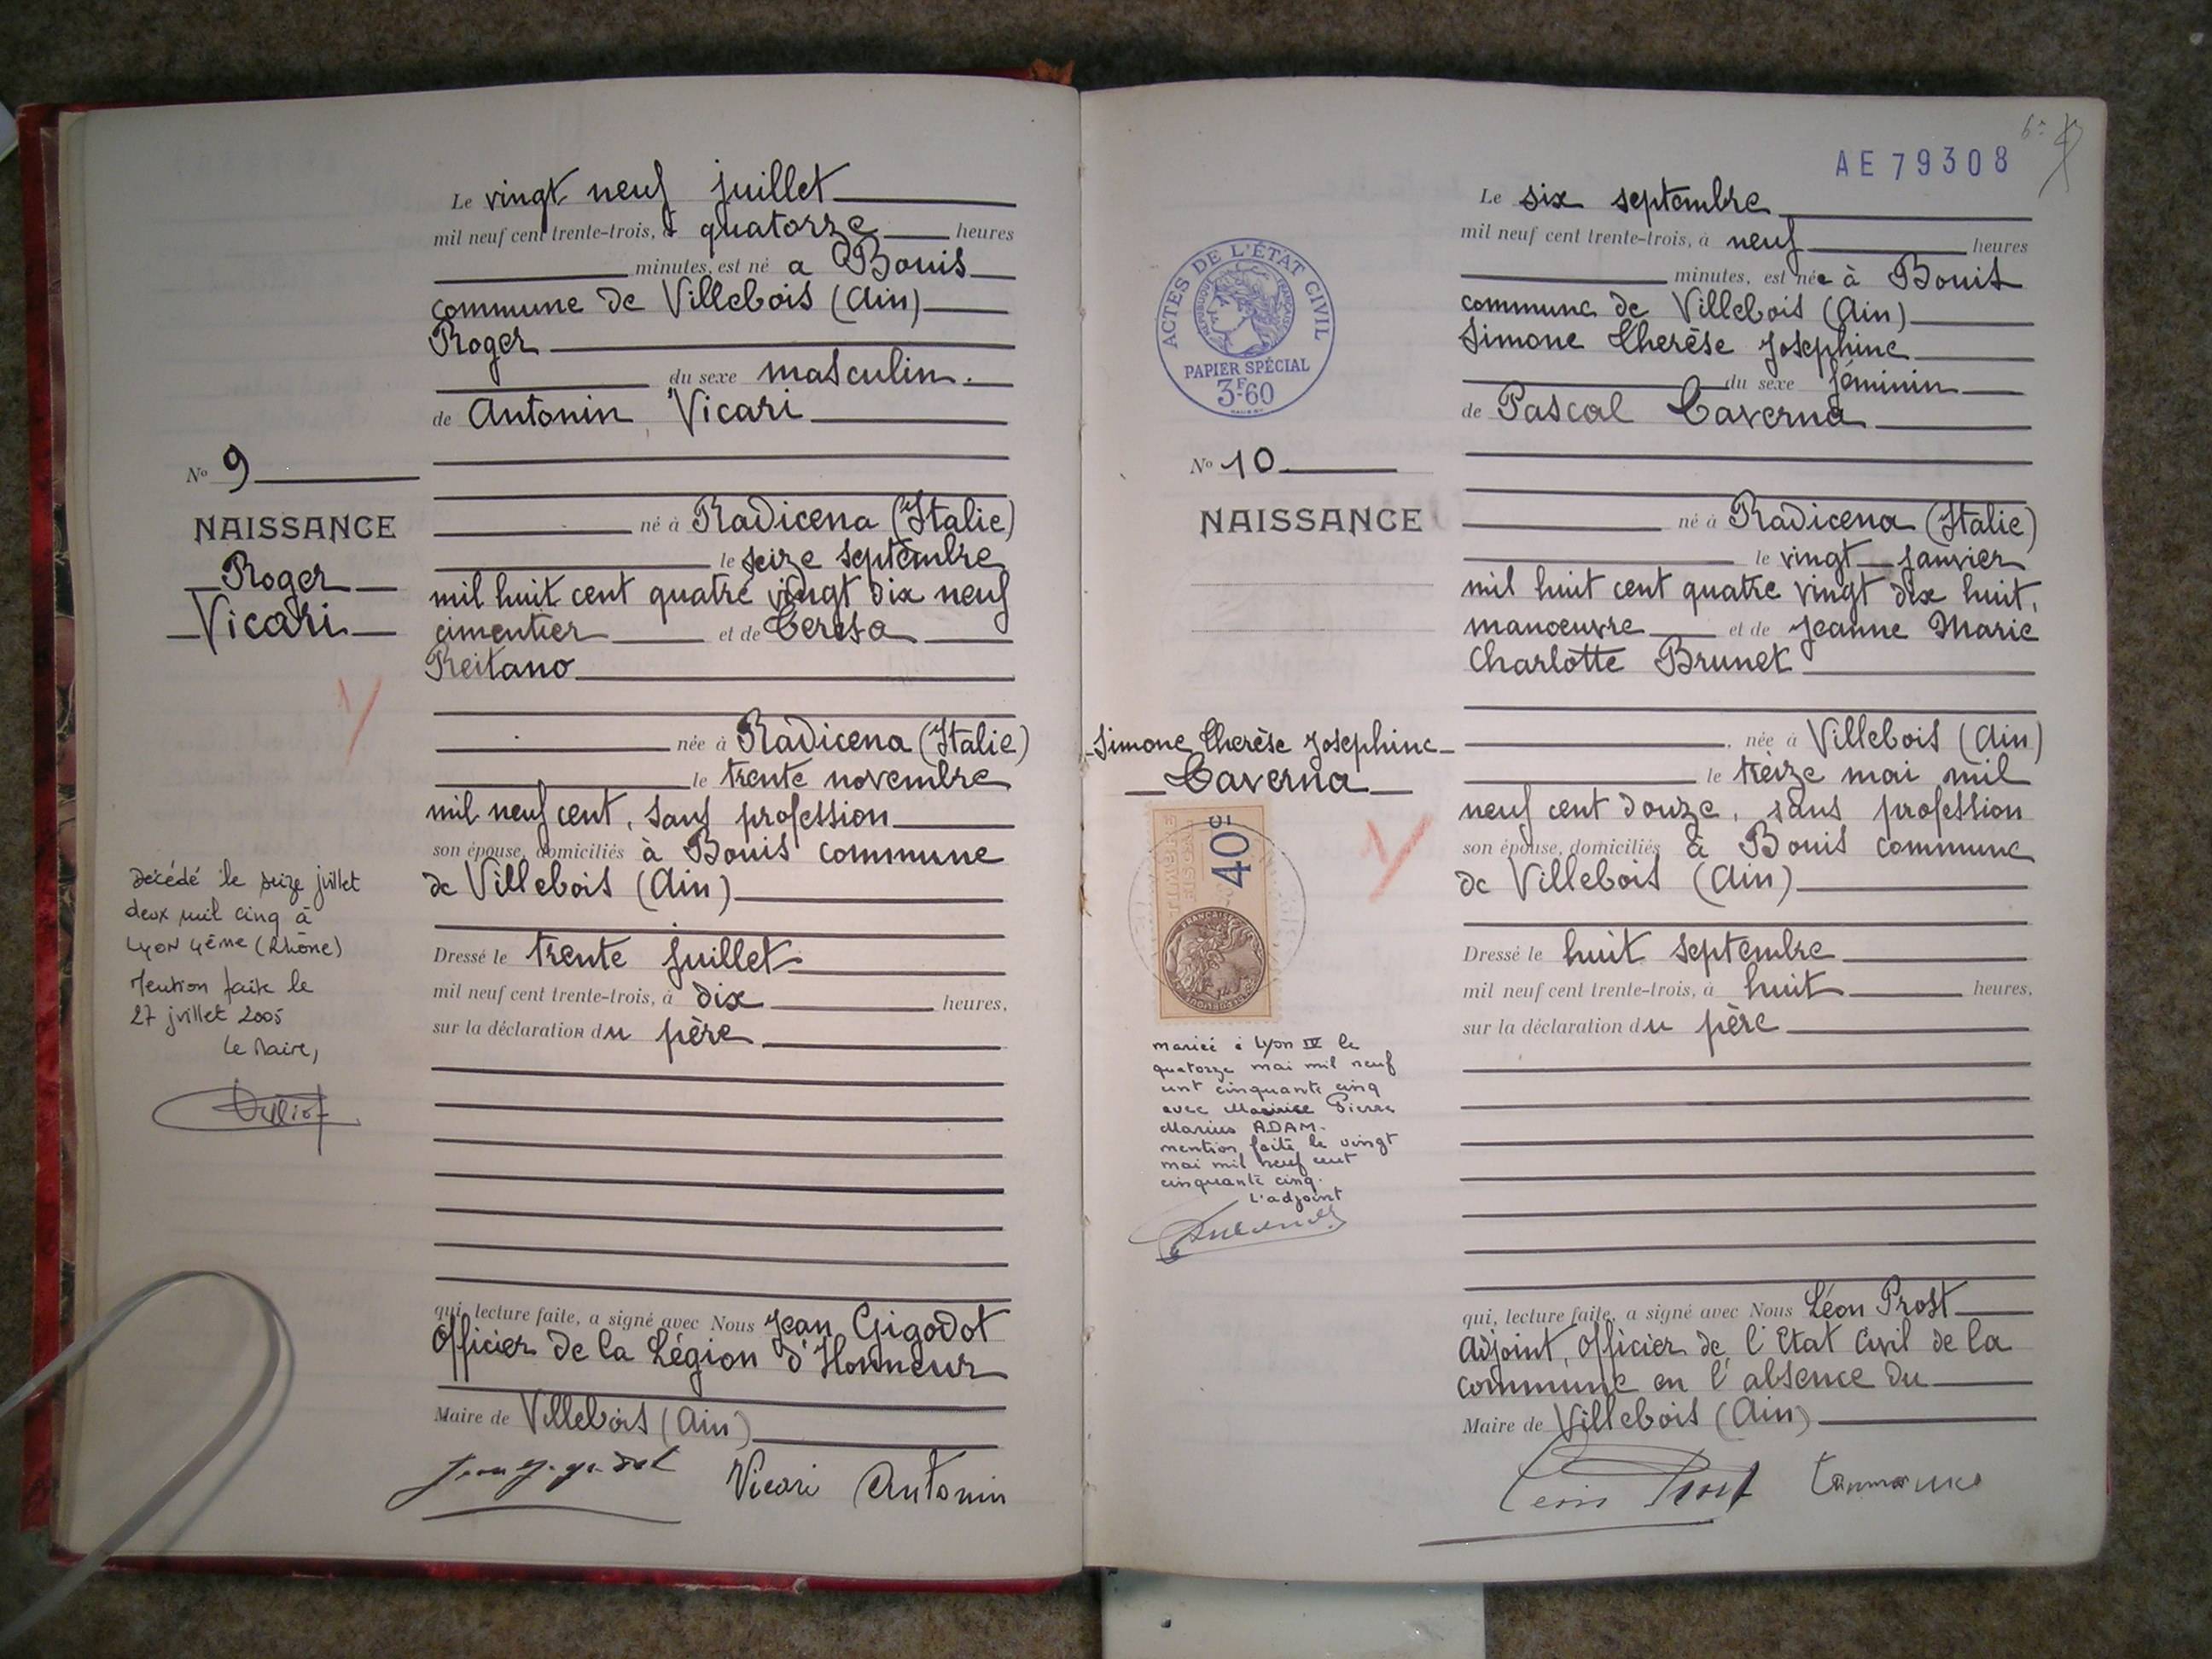 Le vingt neuf juillet
mil neuf cent trente-trois, à quatorze heures
minutes, est né a Bouis
commune de Villebois (Ain)
Roger
du sexe masculin.
de Antonin Vicari
No 9
NAISSANCE
Roger
Vicari
né à Radicena (Italie)
le seize septembre
mil huit cent quatre vingt dix neuf
cimentier et de Teresa
Reitano
née à Radicena (Italie)
le trente novembre
mil neuf cent, sans profession
son épouse, domiciliés à Bouis commune
de Villebois (Ain)
Décédé le seize juillet
deux mil cinq à
LYON 4ème (Rhône)
Mention faite le
27 juillet 2005
Le Maire,
Dressé le trente juillet
mil neuf cent trente-trois, à dix heures,
sur la déclaration du père
qui, lecture faite, a signé avec Nous Jean Gigodot
Officier de la Légion d'Honneur
Maire de Villebois (Ain)
Vicari Antonin
AE 79308
Le six septembre
mil neuf cent trente-trois, à neuf heures
minutes, est née à Bouis
commune de Villebois (Ain)
Simone Therèse Josephine
du sexe féminin
de Pascal Taverna
ACTES DE L'ÉTAT CIVIL
RÉPUBLIQUE FRANÇAISE
PAPIER SPÉCIAL
3F60
No 10
NAISSANCE
Simone Therèse Josephine
Taverna
né à Radicena (Italie)
le vingt janvier
mil huit cent quatre vingt dix huit,
manoeuvre et de Jeanne Marie
Charlotte Brunet
née à Villebois (Ain)
le treize mai mil
neuf cent douze, sans profession
son épouse, domiciliés à Bouis commune
de Villebois (Ain)
TIMBRE
FISCAL
40c
Dressé le huit septembre
mil neuf cent trente-trois, à huit heures,
sur la déclaration du père
mariée à Lyon IV le
quatorze mai mil neuf
cent cinquante cinq
avec Maurice Pierre
Marius ADAM.
mention faite le vingt
mai mil neuf cent
cinquante cinq.
L'adjoint
qui, lecture faite, a signé avec Nous Léon Prost
Adjoint, Officier de l'Etat Civil de la
commune en l'absence du
Maire de Villebois (Ain)
Léon Prost